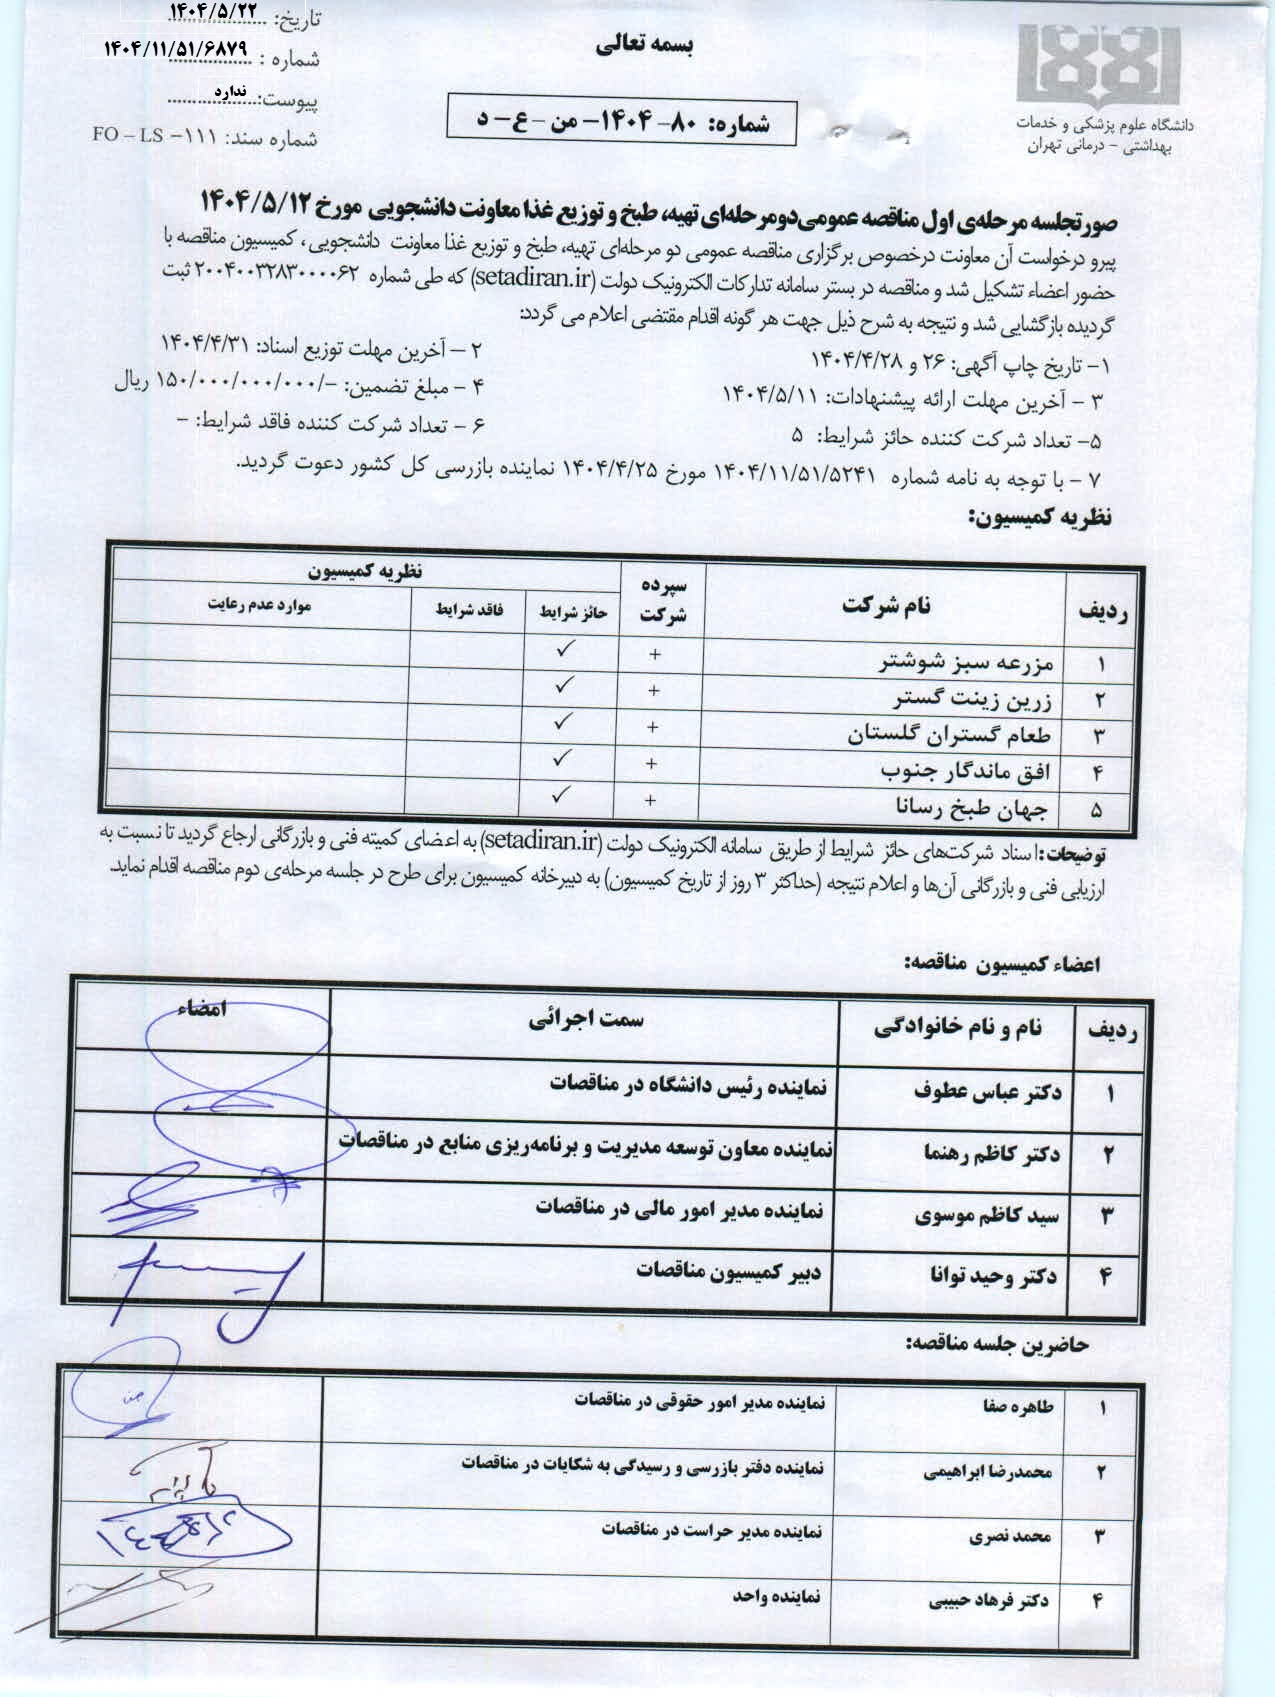 بسمه تعالی
تاریخ: ۱۴۰۴/۵/۲۲
شماره : ۱۴۰۴/۱۱/۵۱/۶۸۷۹
پیوست: ندارد
شماره سند: FO – LS – ۱۱۱
دانشگاه علوم پزشکی و خدمات
بهداشتی – درمانی تهران
شماره: ۸۰- ۱۴۰۴- من - ع- د
صورتجلسه مرحله‌ی اول مناقصه عمومی دومرحله‌ای تهیه، طبخ و توزیع غذا معاونت دانشجویی مورخ ۱۴۰۴/۵/۱۲
پیرو درخواست آن معاونت درخصوص برگزاری مناقصه عمومی دو مرحله‌ای تهیه، طبخ و توزیع غذا معاونت دانشجویی، کمیسیون مناقصه با
حضور اعضاء تشکیل شد و مناقصه در بستر سامانه تدارکات الکترونیک دولت (setadiran.ir) که طی شماره ۲۰۰۴۰۰۳۲۸۳۰۰۰۰۶۲ ثبت
گردیده بازگشایی شد و نتیجه به شرح ذیل جهت هر گونه اقدام مقتضی اعلام می گردد:
۱- تاریخ چاپ آگهی: ۲۶ و ۱۴۰۴/۴/۲۸
۲ – آخرین مهلت توزیع اسناد: ۱۴۰۴/۴/۳۱
۳ – آخرین مهلت ارائه پیشنهادات: ۱۴۰۴/۵/۱۱
۴ – مبلغ تضمین: -/۱۵۰/۰۰۰/۰۰۰/۰۰۰ ریال
۵- تعداد شرکت کننده حائز شرایط: ۵
۶ – تعداد شرکت کننده فاقد شرایط: -
۷ – با توجه به نامه شماره ۱۴۰۴/۱۱/۵۱/۵۲۴۱ مورخ ۱۴۰۴/۴/۲۵ نماینده بازرسی کل کشور دعوت گردید.
نظریه کمیسیون:
ردیف نام شرکت سپرده شرکت نظریه کمیسیون
حائز شرایط فاقد شرایط موارد عدم رعایت
۱ مزرعه سبز شوشتر + ✓
۲ زرین زینت گستر + ✓
۳ طعام گستران گلستان + ✓
۴ افق ماندگار جنوب + ✓
۵ جهان طبخ رسانا + ✓
توضیحات: اسناد شرکت‌های حائز شرایط از طریق سامانه الکترونیک دولت (setadiran.ir) به اعضای کمیته فنی و بازرگانی ارجاع گردید تا نسبت به
ارزیابی فنی و بازرگانی آن‌ها و اعلام نتیجه (حداکثر ۳ روز از تاریخ کمیسیون) به دبیرخانه کمیسیون برای طرح در جلسه مرحله‌ی دوم مناقصه اقدام نماید.
اعضاء کمیسیون مناقصه:
ردیف نام و نام خانوادگی سمت اجرائی امضاء
۱ دکتر عباس عطوف نماینده رئیس دانشگاه در مناقصات
۲ دکتر کاظم رهنما نماینده معاون توسعه مدیریت و برنامه‌ریزی منابع در مناقصات
۳ سید کاظم موسوی نماینده مدیر امور مالی در مناقصات
۴ دکتر وحید توانا دبیر کمیسیون مناقصات
حاضرین جلسه مناقصه:
۱ طاهره صفا نماینده مدیر امور حقوقی در مناقصات
۲ محمدرضا ابراهیمی نماینده دفتر بازرسی و رسیدگی به شکایات در مناقصات
۳ محمد نصری نماینده مدیر حراست در مناقصات
۴ دکتر فرهاد حبیبی نماینده واحد